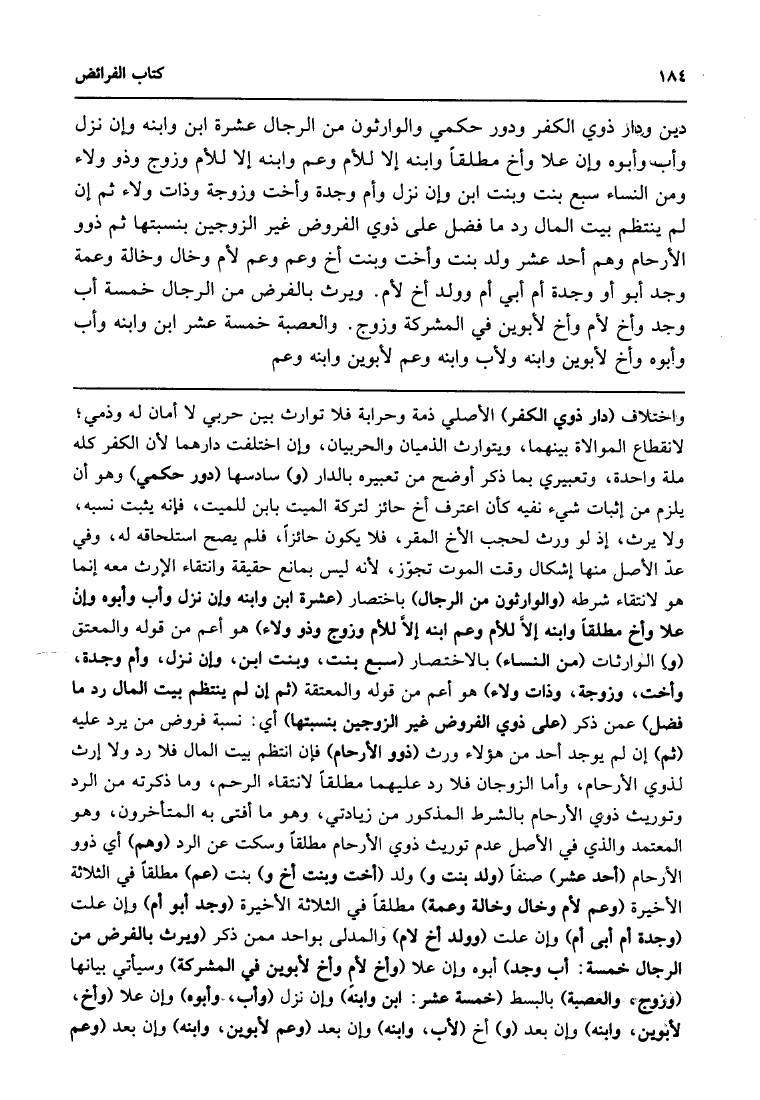 ١٨٤
كتاب الفرائض
دين ودار ذوي الكفر ودور حكمي والوارثون من الرجال عشرة ابن وابنه وإن نزل
وأب وأبوه وإن علا وأخ مطلقاً وابنه إلا للأم وعم وابنه إلا للأم وزوج وذو ولاء
ومن النساء سبع بنت وبنت ابن وإن نزل وأم وجدة وأخت وزوجة وذات ولاء ثم إن
لم ينتظم بيت المال رد ما فضل على ذوي الفروض غير الزوجين بنسبتها ثم ذوو
الأرحام وهم أحد عشر ولد بنت وأخت وبنت أخ وعم وعم لأم وخال وخالة وعمة
وجد أبو أو وجدة أم أبي أم وولد أخ لأم. ويرث بالفرض من الرجال خمسة أب
وجد وأخ لأم وأخ لأبوين في المشركة وزوج. والعصبة خمسة عشر ابن وابنه وأب
وأبوه وأخ لأبوين وابنه ولأب وابنه وعم لأبوين وابنه وعم
واختلاف (دار ذوي الكفر) الأصلي ذمة وحرابة فلا توارث بين حربي لا أمان له وذمي؛
لانقطاع الموالاة بينهما، ويتوارث الذميان والحربيان، وإن اختلفت دارهما لأن الكفر كله
ملة واحدة، وتعبيري بما ذكر أوضح من تعبيره بالدار (و) سادسها (دور حكمي) وهو أن
يلزم من إثبات شيء نفيه كأن اعترف أخ حائز لتركة الميت بابن للميت، فإنه يثبت نسبه،
ولا يرث، إذ لو ورث لحجب الأخ المقر، فلا يكون حائزاً، فلم يصح استلحاقه له، وفي
عدّ الأصل منها إشكال وقت الموت تجوّز، لأنه ليس بمانع حقيقة وانتفاء الإرث معه إنما
هو لانتفاء شرطه (والوارثون من الرجال) باختصار (عشرة ابن وابنه وإن نزل وأب وأبوه وإنْ
علا وأخ مطلقاً وابنه إلاّ للأم وعم ابنه إلاّ للأم وزوج وذو ولاء) هو أعم من قوله والمعتق
(و) الوارثات (من النساء) بالاختصار (سبع بنت، وبنت ابن، وإن نزل، وأم وجدة،
وأخت، وزوجة، وذات ولاء) هو أعم من قوله والمعتقة (ثم إن لم ينتظم بيت المال رد ما
فضل) عمن ذكر (على ذوي الفروض غير الزوجين بنسبتها) أي: نسبة فروض من يرد عليه
(ثم) إن لم يوجد أحد من هؤلاء ورث (ذوو الأرحام) فإن انتظم بيت المال فلا رد ولا إرث
لذوي الأرحام، وأما الزوجان فلا رد عليهما مطلقاً لانتفاء الرحم، وما ذكرته من الرد
وتوريث ذوي الأرحام بالشرط المذكور من زيادتي، وهو ما أفتى به المتأخرون، وهو
المعتمد والذي في الأصل عدم توريث ذوي الأرحام مطلقاً وسكت عن الرد (وهم) أي ذوو
الأرحام (أحد عشر) صنفاً (ولد بنت و) ولد (أخت وبنت أخ و) بنت (عم) مطلقاً في الثلاثة
الأخيرة (وعم لأم وخال وخالة وعمة) مطلقاً في الثلاثة الأخيرة (وجد أبو أم) وإن علت
(وجدة أم أبى أم) وإن علت (وولد أخ لام) والمدلى بواحد ممن ذكر (ويرث بالفرض من
الرجال خمسة: أب وجد) أبوه وإن علا (وأخ لأم وأخ لأبوين في المشركة) وسيأتي بيانها
(وزوج، والعصبة) بالبسط (خمسة عشر: ابن وابنه) وإن نزل (وأب، وأبوه) وإن علا (وأخ،
لأبوين، وابنه) وإن بعد (و) أخ (لأب، وابنه) وإن بعد (وعم لأبوين، وابنه) وإن بعد (وعم